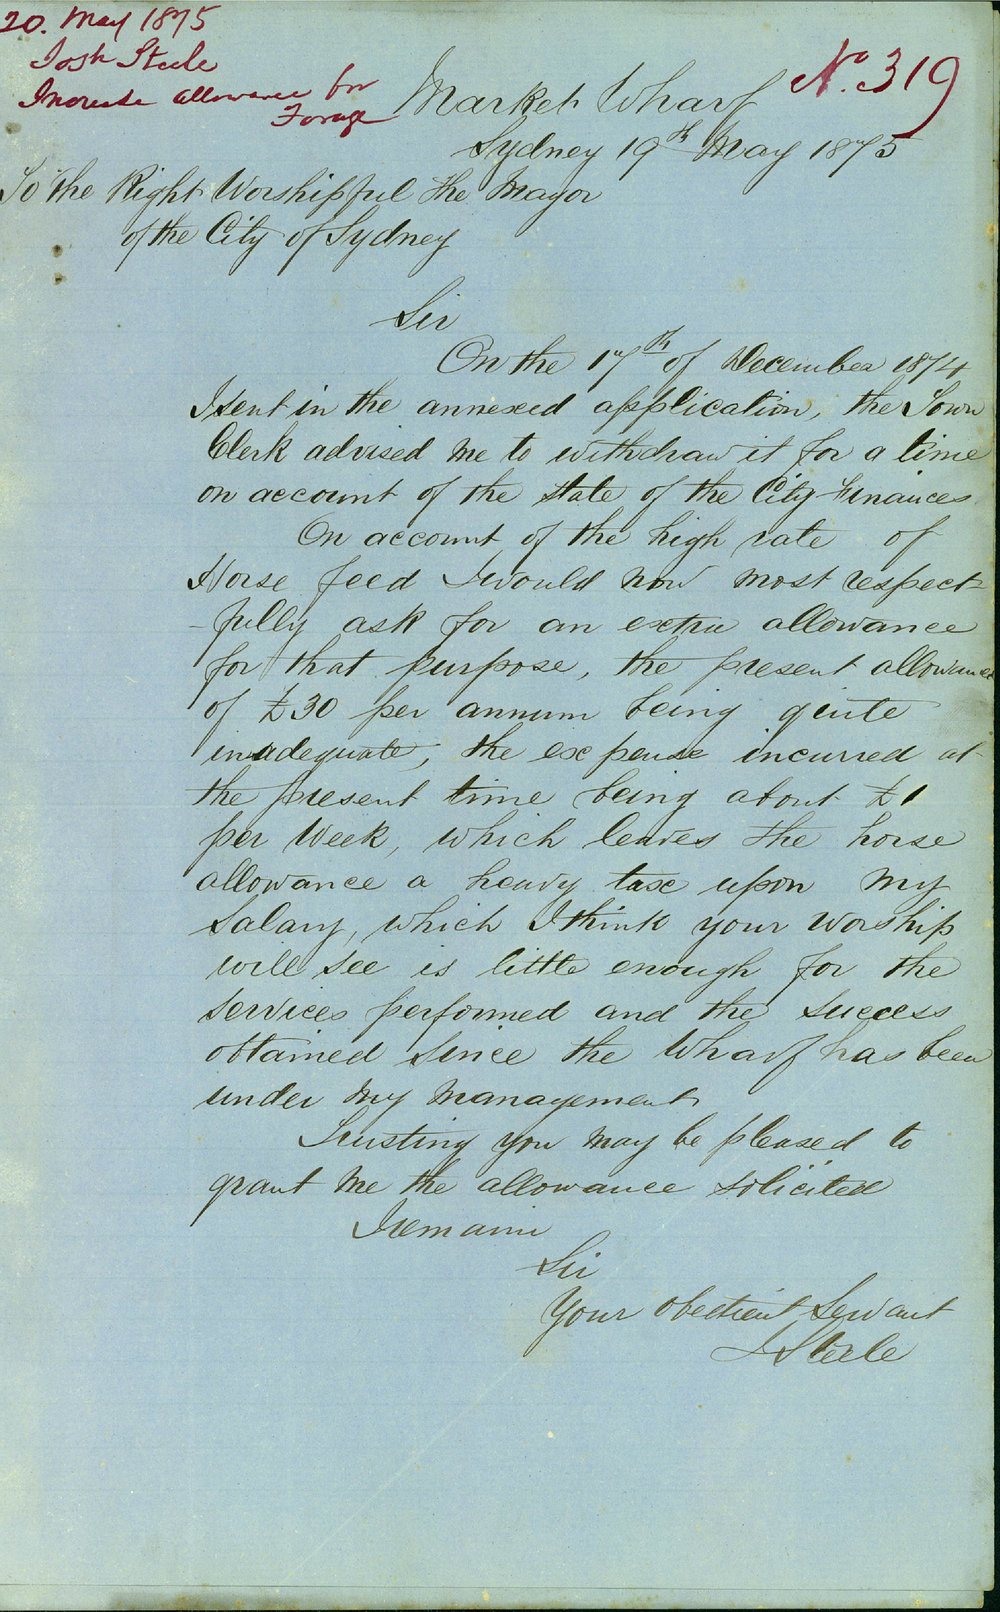 20. May 1875
Josh Steele
Increase allowance for
Forage
No. 319
Market Wharf
Sydney 19th May 1875
To the Right Worshipful the Mayor
of the City of Sydney
Sir
On the 17th of December 1874
I sent in the annexed application, the Town
Clerk advised me to withdraw it for a time
on account of the state of the City Finances
On account of the high rate of
Horse feed I would now most respect-
-fully ask for an extra allowance
for that purpose, the present allowance
of £30 per annum being quite
inadequate, the expense incurred at
the present time being about £1
per Week, which leaves the horse
allowance a heavy tax upon my
Salary, which I think your Worship
will see is little enough for the
services performed and the success
obtained since the Wharf has been
under my management
Trusting you may be pleased to
grant me the allowance solicited
I remain
Sir
Your obedient Servant
J Steele